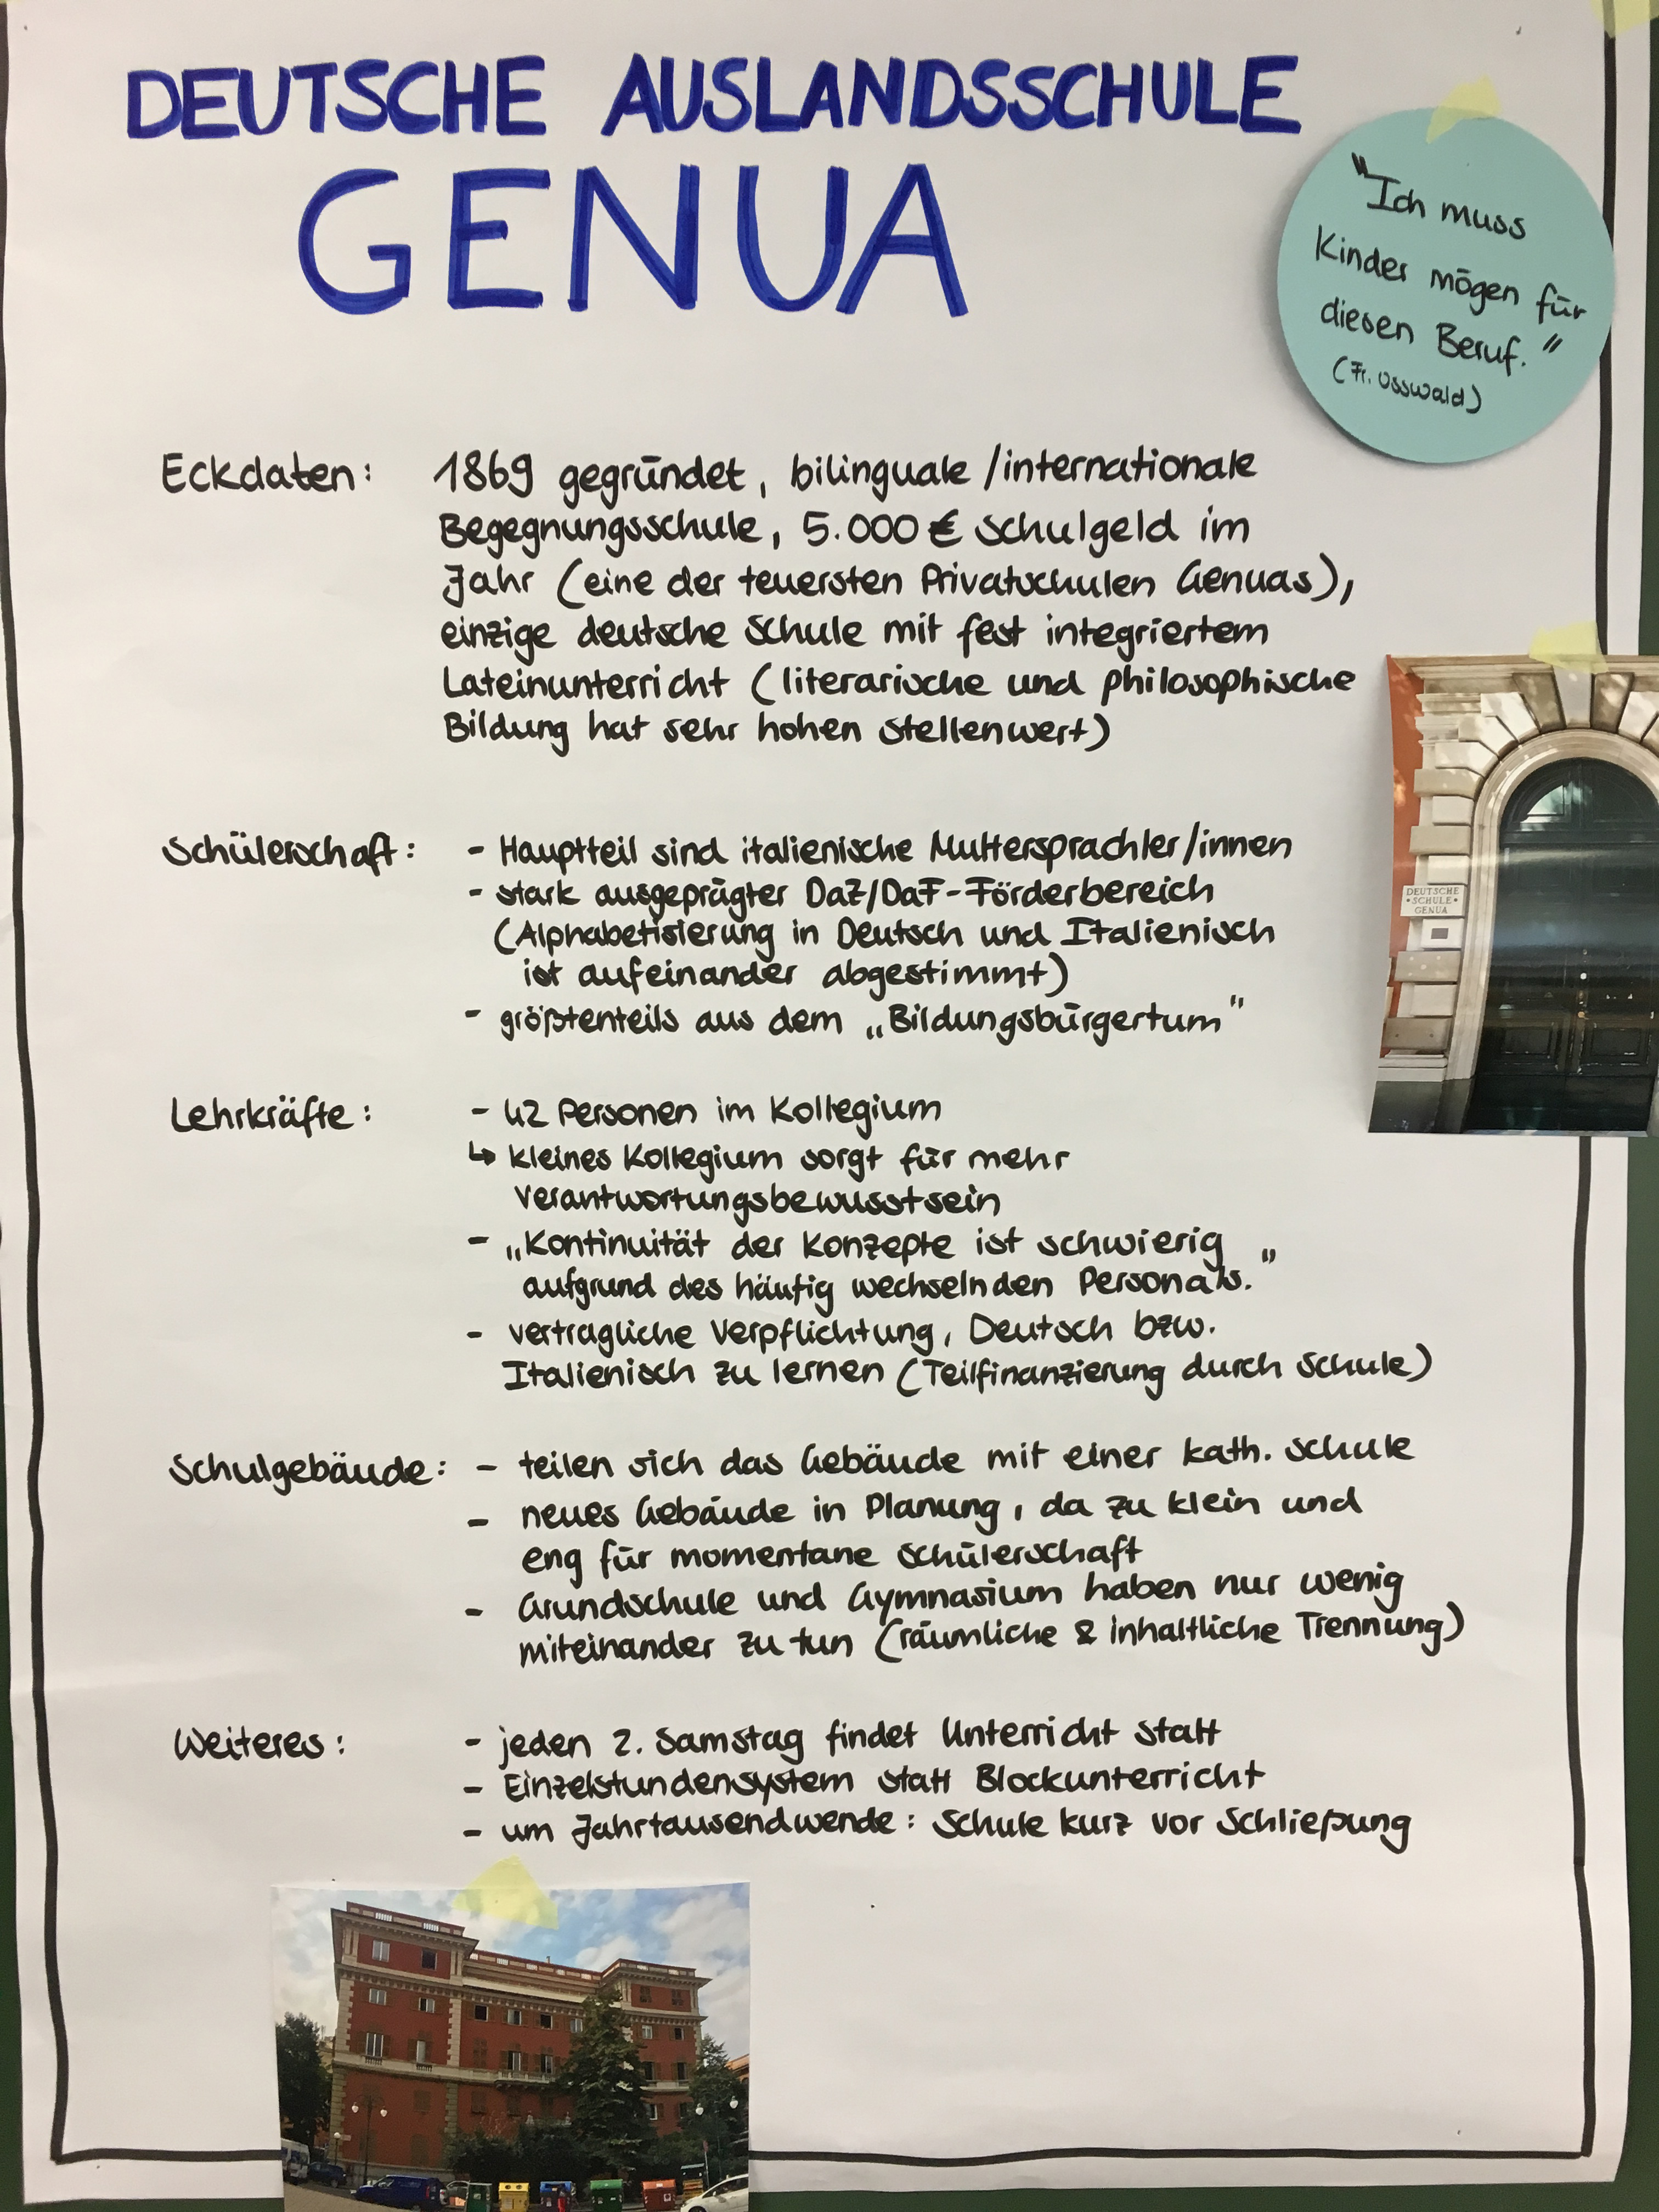 DEUTSCHE AUSLANDSSCHULE
GENUA
"Ich muss
Kinder mögen für
diesen Beruf."
(Fr. Osswald)
Eckdaten: 1869 gegründet, bilinguale/internationale
Begegnungsschule, 5.000 € Schulgeld im
Jahr (eine der teuersten Privatschulen Genuas),
einzige deutsche Schule mit fest integriertem
Lateinunterricht (literarische und philosophische
Bildung hat sehr hohen Stellenwert)
DEUTSCHE
•SCHULE•
GENUA
Schülerschaft: - Hauptteil sind italienische Muttersprachler/innen
- stark ausgeprägter DaZ/DaF-Förderbereich
(Alphabetisierung in Deutsch und Italienisch
ist aufeinander abgestimmt)
- größtenteils aus dem „Bildungsbürgertum"
Lehrkräfte: - 42 Personen im Kollegium
↳ kleines Kollegium sorgt für mehr
Verantwortungsbewusstsein
- „Kontinuität der Konzepte ist schwierig
aufgrund des häufig wechselnden Personals."
- vertragliche Verpflichtung, Deutsch bzw.
Italienisch zu lernen (Teilfinanzierung durch Schule)
Schulgebäude: - teilen sich das Gebäude mit einer kath. Schule
- neues Gebäude in Planung, da zu klein und
eng für momentane Schülerschaft
- Grundschule und Gymnasium haben nur wenig
miteinander zu tun (räumliche & inhaltliche Trennung)
Weiteres: - jeden 2. Samstag findet Unterricht statt
- Einzelstundensystem statt Blockunterricht
- um Jahrtausendwende: Schule kurz vor Schließung